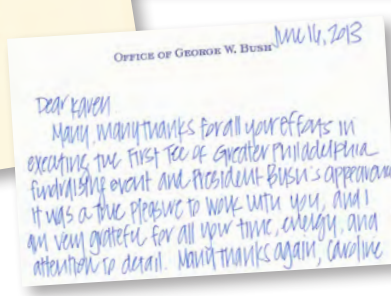 OFFICE OF GEORGE W. BUSH
June 16, 2013
Dear Karen
Many, many thanks for all your efforts in
executing the First Tee of Greater Philadelphia
fundraising event and President Bush's appearance
It was a true pleasure to work with you, and I
am very grateful for all your time, energy, and
attention to detail. Many thanks again, Caroline